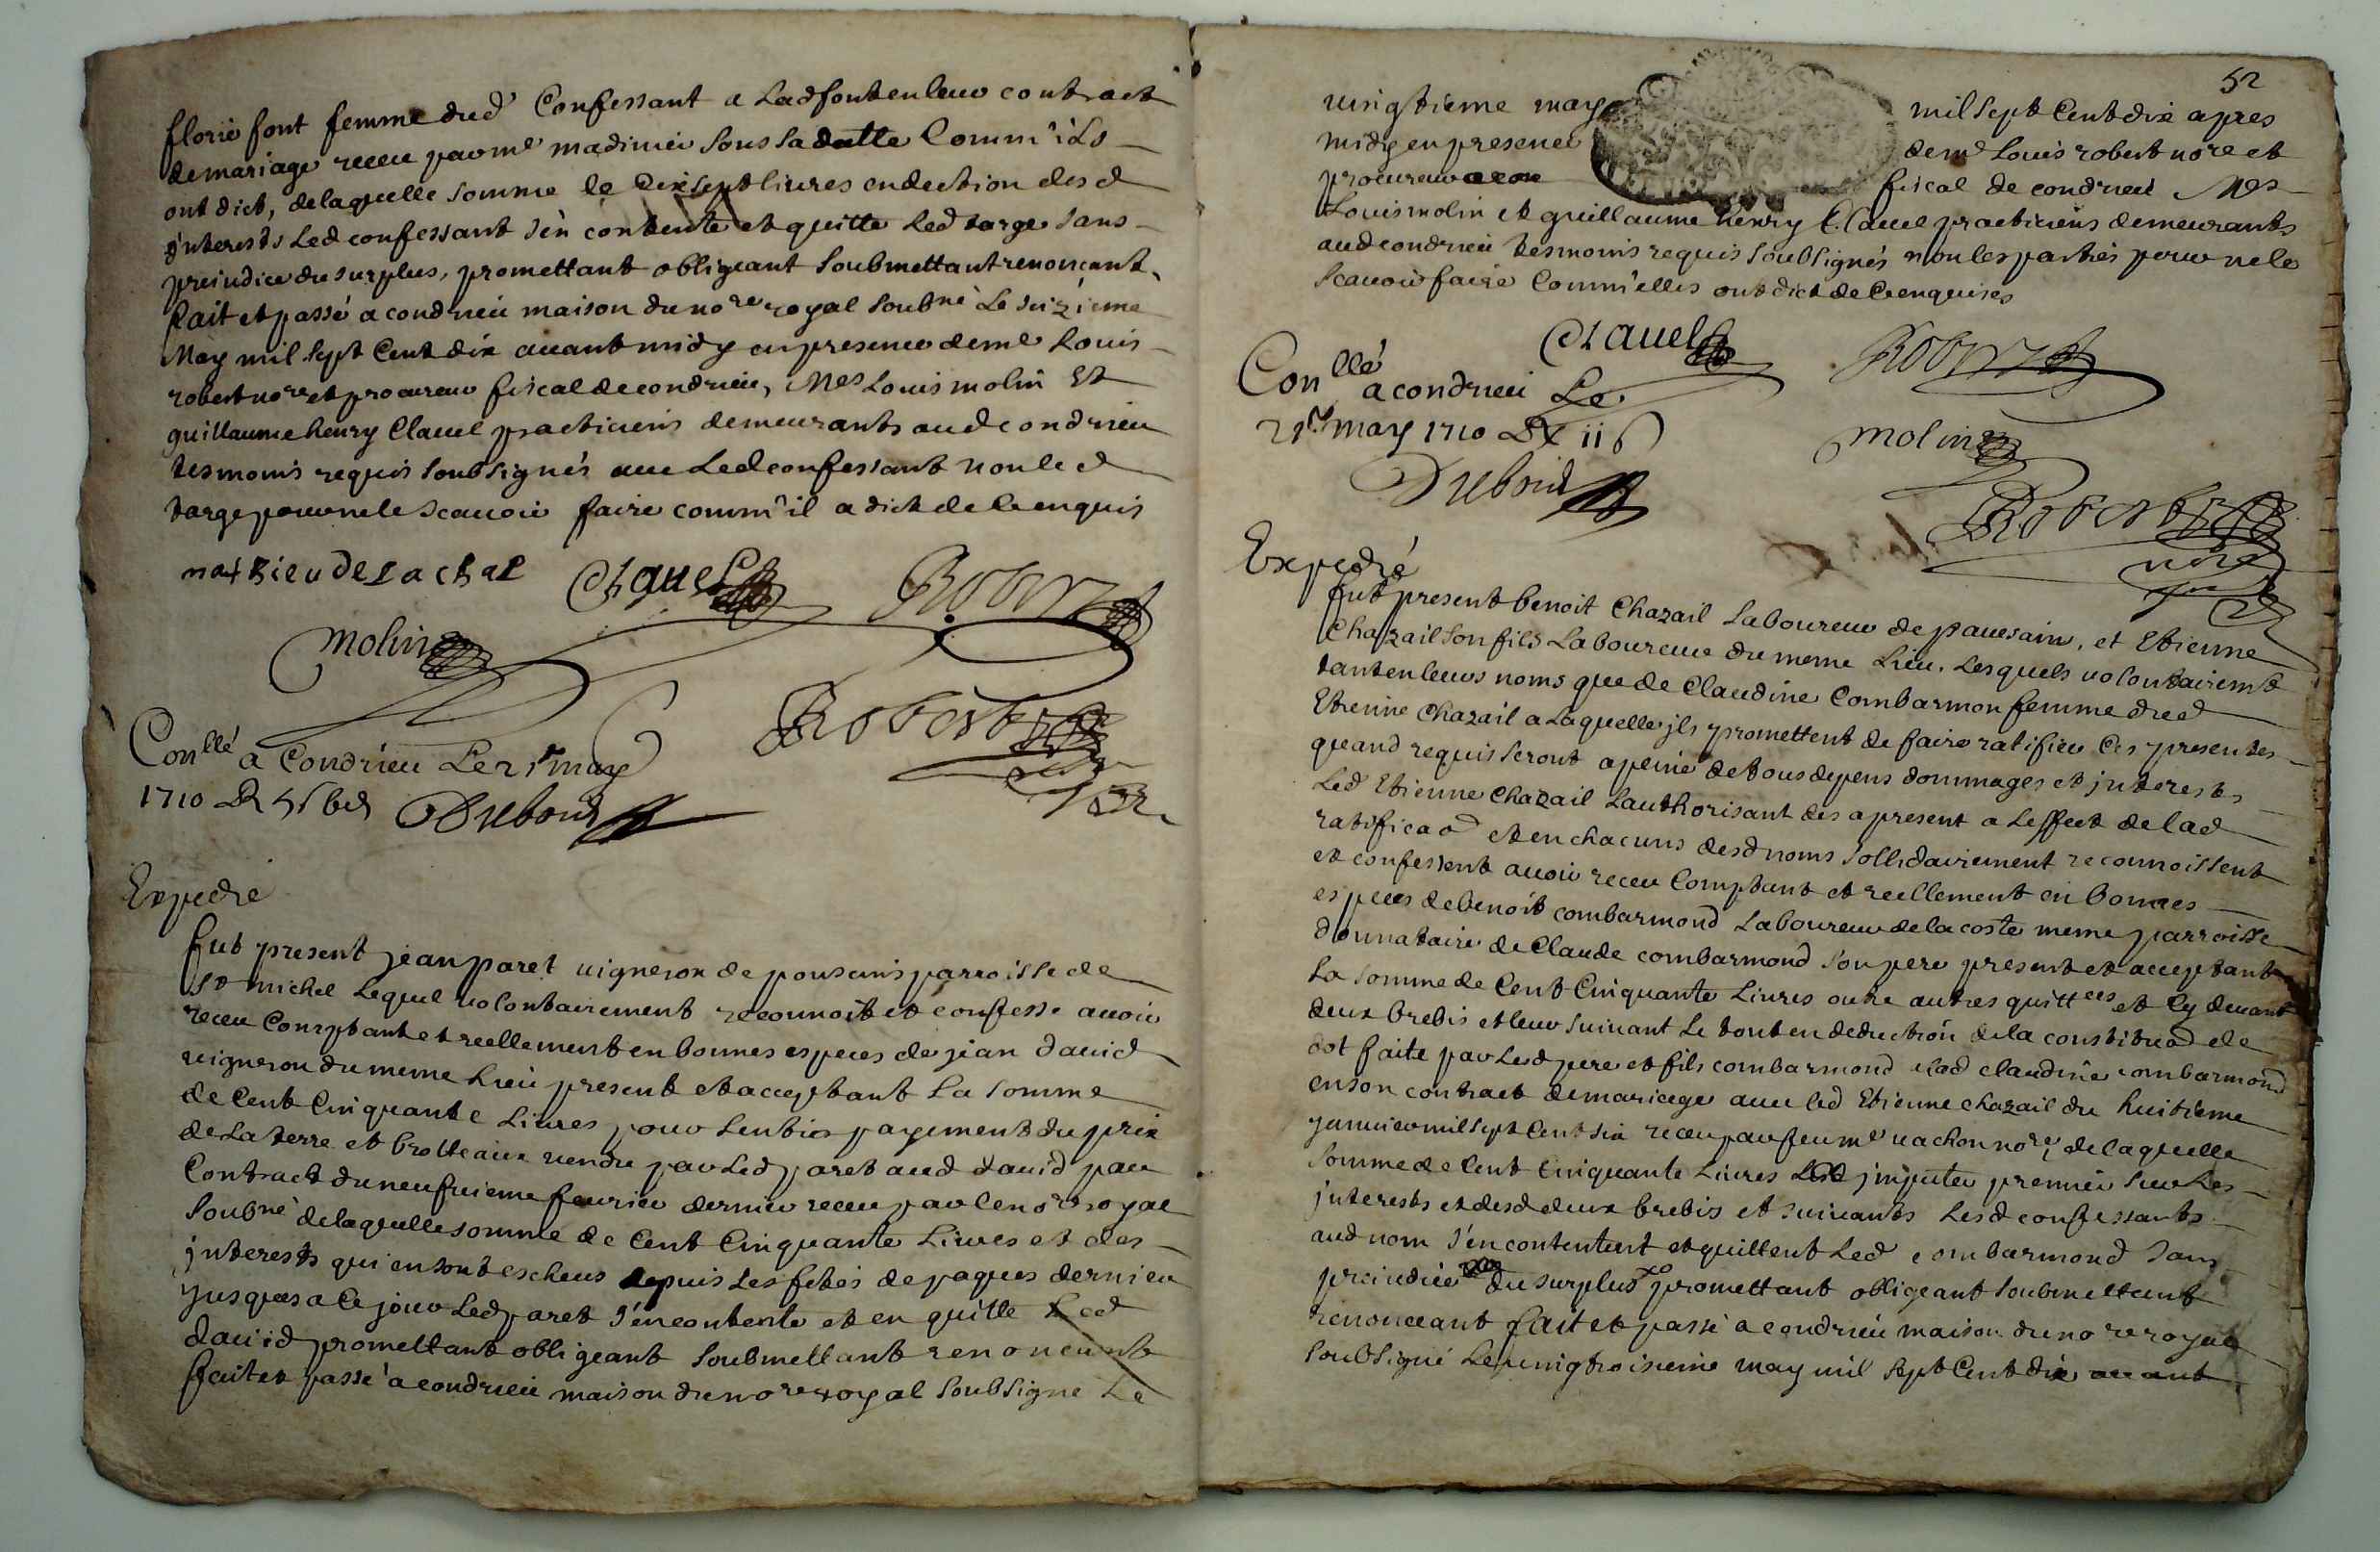 florie font femme dud Confessant a Lad font en leur contract
de mariage receu par me madinier sous sa datte Comm'ils
ont dict, de laquelle somme de dix sept livres en dection desd
interests Led confessant s'en contente et quitte Led targe sans
preiudice du surplus, promettant obligeant soubmettant renoncant
fait et passé a condrieu maison du nore royal soubné Le
May mil sept Cent dix auant midy en presence de me Louis
robert nore et procureur fiscal de condrieu, Mes Louis molin Et
guillaume henry Clauel practiciens demeurants aud condrieu
tesmoins requis soubsignés auec Led confessant non led
targe pour ne le scauoir faire comm'il a dict de Ce enquis
mathieu delachal Clauel Robert
molin
Robert
Conllé a Condrieu Le 21 may
1710 R Dubouis
Expedié
fut present jean paret uigneron de pousains parroisse de
St michel Lequel uolontairement reconnoit et confesse auoir
receu Comptant et reellement en bonnes especes de jean dauid
uigneron du meme lieu present et acceptant La somme
de Cent Cinquante Liures pour Lentier payement du prix
de La terre et brotteaux uendu par Led paret aud dauid par
Contract du neufuieme feurier dernier receu par le nore royal
soubné de laquelle somme de Cent Cinquante Liures et des
interests qui en sont escheus depuis Les fetes de paques dernier
jusques a Ce jour Led paret s'en contente et en quitte Led
dauid promettant obligeant soubmettant renoncant
fait et passé a condrieu maison du nore royal soubsigné Le
52
uingtieme may mil sept Cent dix apres
midy en presence de me Louis robert nore et
procureur fiscal de condrieu Mes
Louis molin et guillaume henry Clauel practiciens demeurants
aud condrieu tesmoins requis soubsignés non les parties pour ne le
scauoir faire Comm'elles ont dict de Ce enquises
Clauel Robert
Conllé a condrieu Le
21 may 1710 molin
Dubouis
Robert
nore
Expedié
fut present benoit Chazail Laboureur de pauesain, et Etienne
Chazail son fils Laboureur du meme Lieu. Lesquels uolontairemt
tant en leurs noms que de Claudine Combarmon femme dud
Etienne Chazail a Laquelle jls promettent de faire ratifier Ces presentes
quand requis seront a peine de tous depens dommages et jnterests
Led Etienne Chazail Lauthorisant des a present a Leffect de lad
ratificaon et en chacuns desd noms sollidairement reconnoissent
et confessent auoir receu Comptant et reellement en bonnes
especes de benoit combarmond Laboureur de la coste meme parroisse
donnataire de Claude combarmond son pere present et acceptant
La somme de Cent Cinquante Liures outre autres quittces et Cy deuant
deux brebis et leur suiuant Le tout en deduction de la constituon de
dot faite par Led pere et fils combarmond a lad claudine combarmond
en son contract de mariage auec led Etienne chazail du huitieme
januier mil sept Cent six receu par feu me uachon nore, de laquelle
somme de Cent Cinquante Liures jmputer premier sur Les
jnterests et desd deux brebis et suiuants Lesd confessants
aud nom s'en contentent et quittent Led combarmond sans
preiudice du surplus promettant obligeant soubmettant
renonceant fait et passé a condrieu maison du nore royal
soubsigné Le uingtroisieme may mil sept Cent dix auant